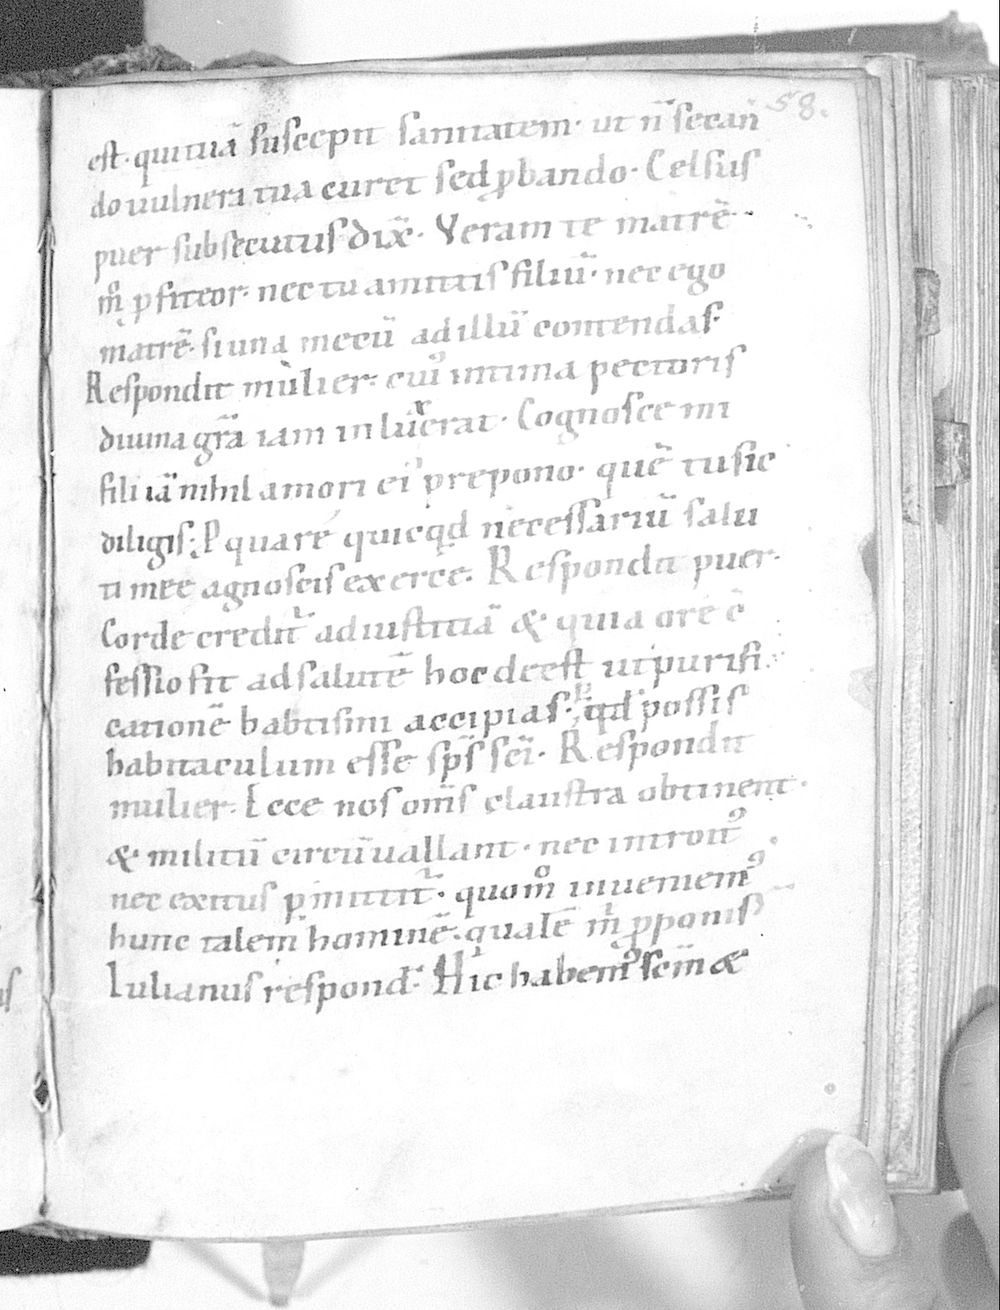 58.
est· qui tuā suscepit sanitatem· ut n̄ secan
do uulnera tua curet sed ꝓbando· Celsus
puer subsecutus dix̄· Veram te matrē·
m̊ ꝓfiteor· nec tu amittis filiū· nec ego
matrē· si una mecū ad illū contendas·
Respondit mulier· cui' intima pectoris
diuina gr̄a iam inluxerat· Cognosce mi
fili iā nihil amori ei' prepono· quē tu sic
diligis; Pquare quicqd necessariū salu
ti mee agnoscis exerce· Respondit puer·
Corde credit᷑ ad iustitiā & quia ore ē
fessio fit ad salutē hoc deest ut purifi
cationē babtismi accipias· qd possis
habitaculum esse sp̄s sc̄i· Respondit
mulier· Ecce nos om̄s claustra obtinent·
& militū circū uallant· nec introit᷒
nec exitus p̱mittit᷑· quom̊ inueniem᷒
hunc talem hominē· qualē m̊ ꝓponis
Iulianus respond̄· Hic habem᷒ sc̄m &